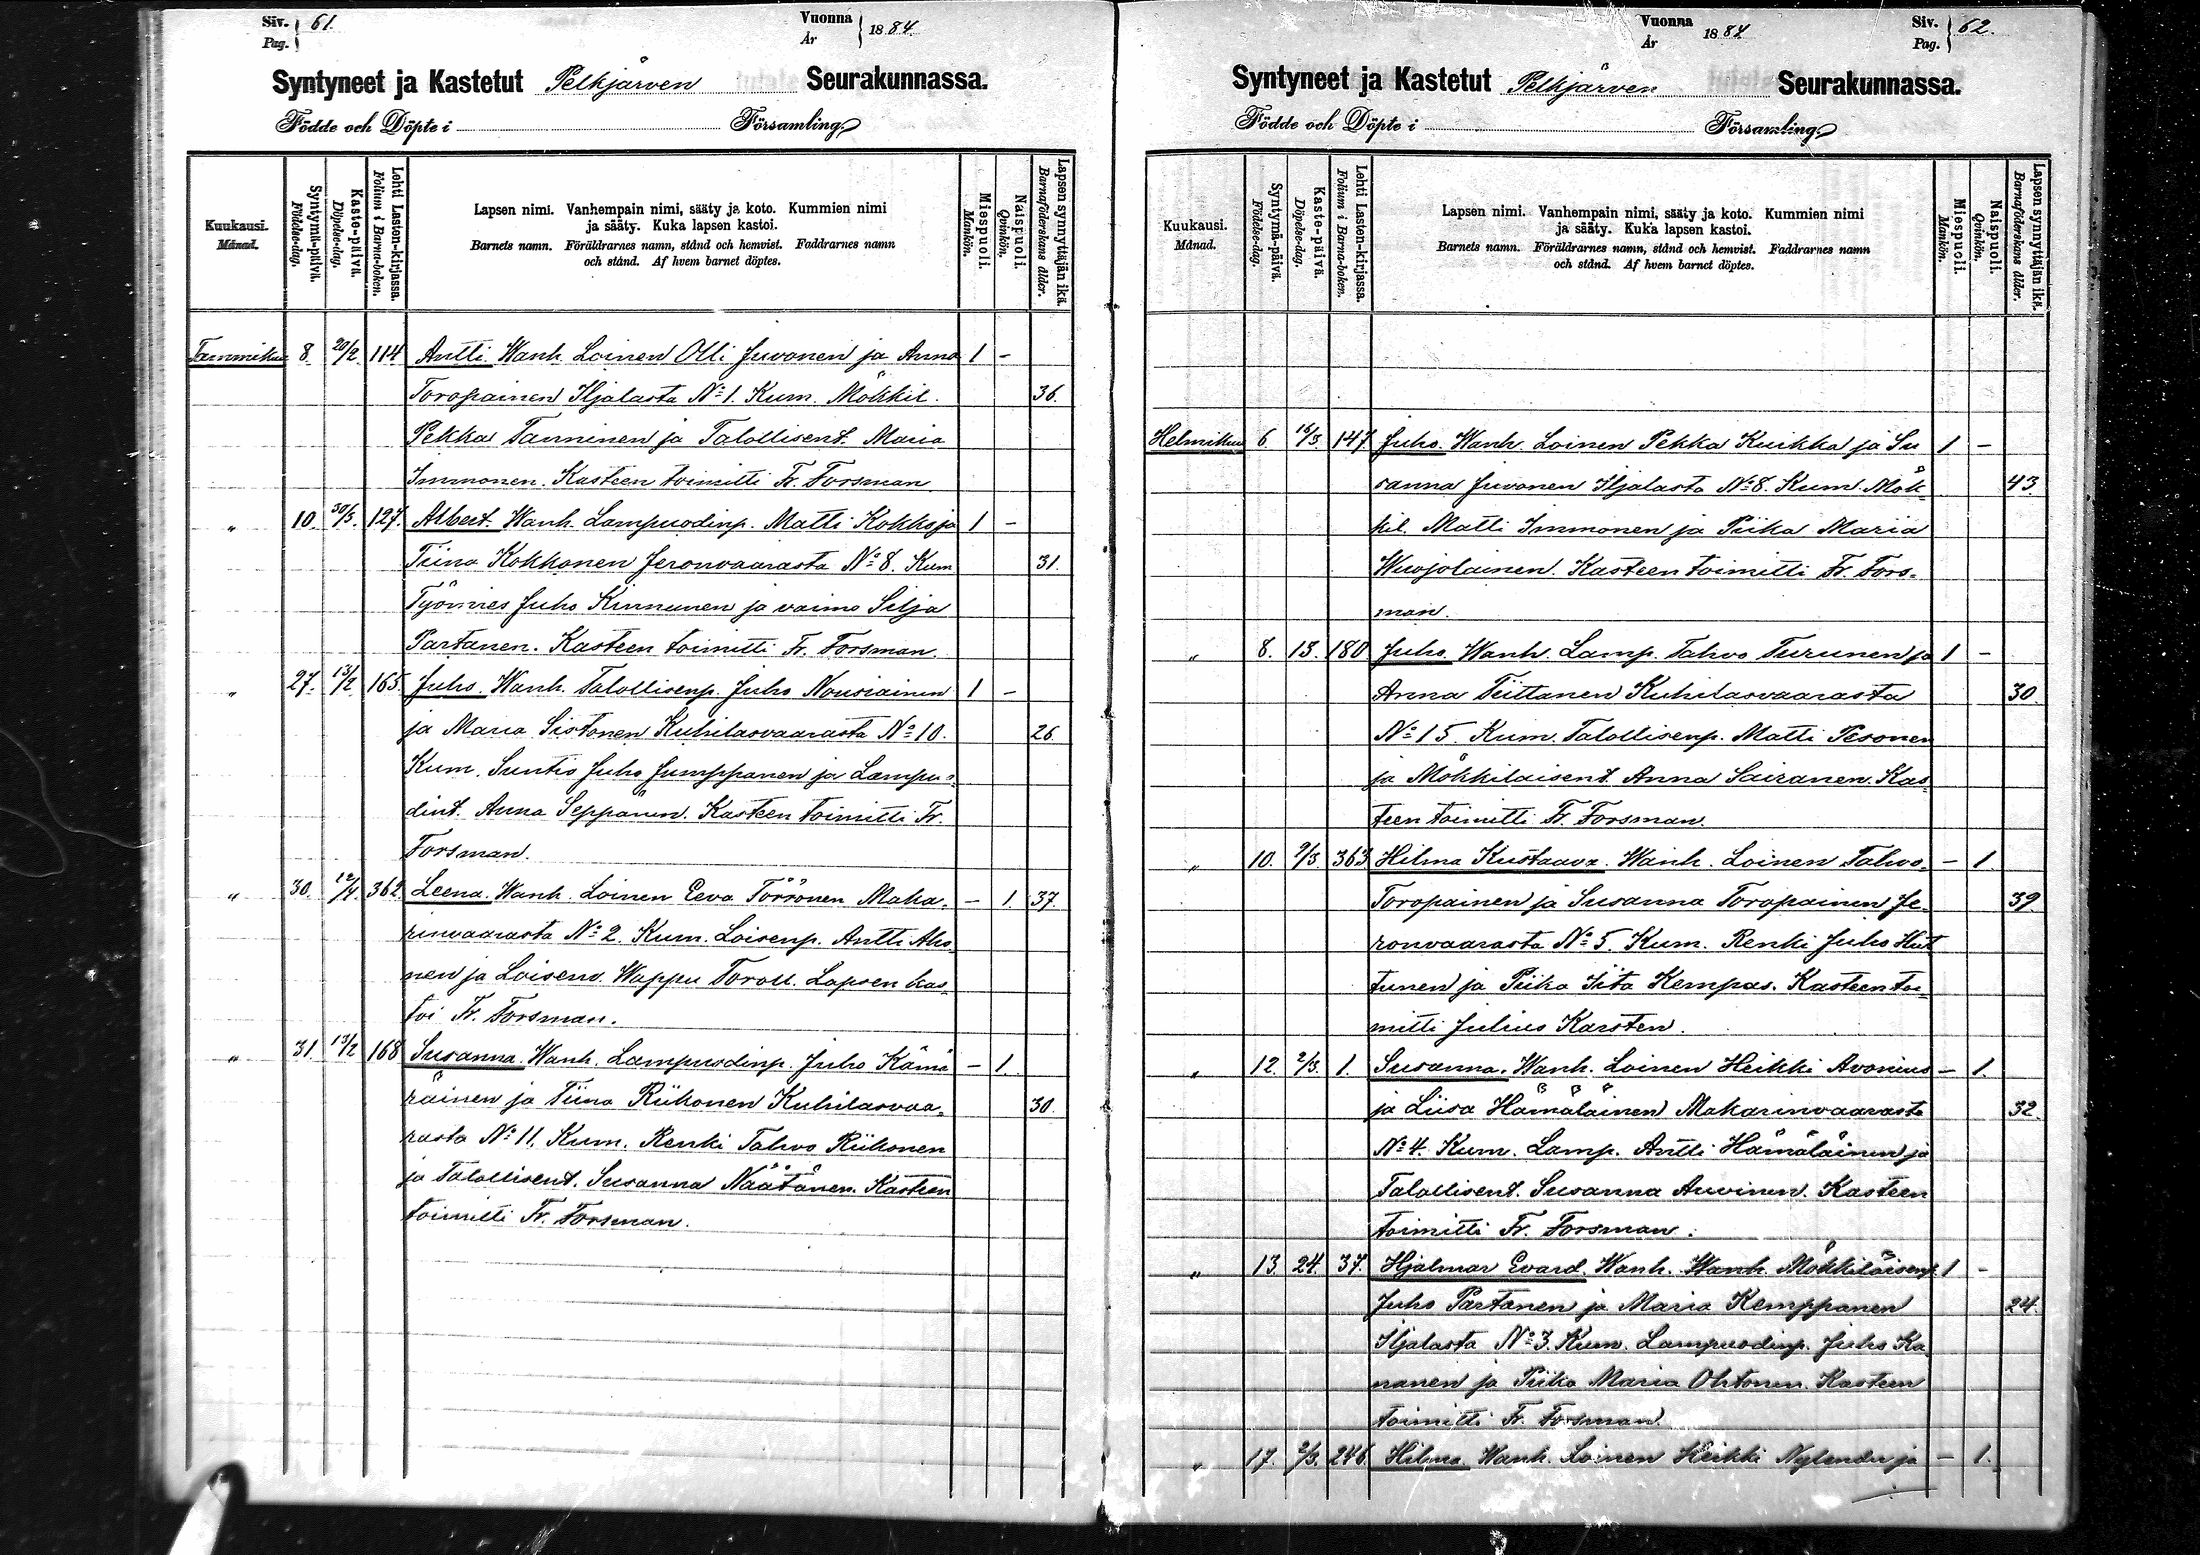 Siv. Pag. 61. Vuonna År 1884.
Syntyneet ja Kastetut Pelkjärven Seurakunnassa.
Födde och Döpte i Församling
Kuukausi. Månad.
Syntymä-päivä. Födelse-dag.
Kaste-päivä. Döpelse-dag.
Lehti Lasten-kirjassa. Folium i Barna-boken.
Lapsen nimi. Vanhempain nimi, sääty ja koto. Kummien nimi
ja sääty. Kuka lapsen kastoi.
Barnets namn. Föräldrarnes namn, stånd och hemvist. Faddrarnes namn
och stånd. Af hvem barnet döptes.
Miespuoli. Mankön.
Naispuoli. Qvinkön.
Lapsen synnyttäjän ikä. Barnaföderskans ålder.
Tammikuu 8. 20/2. 114 Antti. Wanh. Loinen Olli Juvonen ja Anna 1 -
Toropainen Iljalasta No 1. Kum. Mökkil. 36.
Pekka Tanninen ja Talollisent. Maria
Immonen. Kasteen toimitti Fr. Forsman
" 10. 30/3. 127. Albert. Wanh. Lampuodinp. Matti Kokko ja 1 -
Tiina Kokkonen Jeronvaarasta No 8. Kum 31.
Työmies Juho Kinnunen ja vaimo Silja
Partanen. Kasteen toimitti Fr. Forsman.
" 27. 13/2 165. Juho. Wanh. Talollisenp. Juho Nousiainen 1 -
ja Maria Sistonen Kuhilasvaarasta No 10. 26
Kum. Suntio Juho Jumppanen ja Lampuo-
dint. Anna Seppänen. Kasteen toimitti Fr.
Forsman.
" 30. 12/4. 362. Leena. Wanh. Loinen Eeva Törrönen Maka- - 1. 37.
rinvaarasta No 2. Kum. Loisenp. Antti Aho-
nen ja Loisenv. Wappu Toroll. Lapsen kas-
toi Fr. Forsman.
" 31. 13/2 168 Susanna. Wanh. Lampuodinp. Juho Kämä - 1.
räinen ja Tiina Riikonen Kuhilasvaa- 30.
rasta No 11. Kum. Renki Tahvo Riikonen
ja Talollisent. Susanna Näätänen. Kasteen
toimitti Fr. Forsman.
Vuonna År 1884 Siv. Pag. 62.
Syntyneet ja Kastetut Pelkjärven Seurakunnassa.
Födde och Döpte i Församling
Kuukausi. Månad.
Syntymä-päivä. Födelse-dag.
Kaste-päivä. Döpelse-dag.
Lehti Lasten-kirjassa. Folium i Barna-boken.
Lapsen nimi. Vanhempain nimi, sääty ja koto. Kummien nimi
ja sääty. Kuka lapsen kastoi.
Barnets namn. Föräldrarnes namn, stånd och hemvist. Faddrarnes namn
och stånd. Af hvem barnet döptes.
Miespuoli. Mankön.
Naispuoli. Qvinkön.
Lapsen synnyttäjän ikä. Barnaföderskans ålder.
Helmikuu 6 16/3. 147. Juho. Wanh. Loinen Pekka Kuikka ja Su 1 -
sanna Juvonen Iljalasta No 8. Kum. Mök- 43.
kil. Matti Immonen ja Piika Maria
Wuojolainen. Kasteen toimitti Fr. Fors-
man.
" 8. 13. 180 Juho. Wanh. Lamp. Tahvo Turunen ja 1 -
Anna Tiittanen Kuhilasvaarasta 30.
No 15. Kum. Talollisenp. Matti Pesonen
ja Mökkilaisent. Anna Sairanen. Kas-
teen toimitti Fr. Forsman.
" 10. 9/3. 363 Hilma Kustaava. Wanh. Loinen Tahvo - 1.
Toropainen ja Susanna Toropainen Je- 39.
ronvaarasta No 5. Kum. Renki Juho Hut
tunen ja Piika Iita Kempas. Kasteen toi-
mitti Julius Karsten.
" 12. 2/3. 1. Susanna. Wanh. Loinen Heikki Avonius - 1.
ja Liisa Hämäläinen Makarinvaarasta 32.
No 4. Kum. Lamp. Antti Hämäläinen ja
Talollisent. Susanna Auvinen. Kasteen
toimitti Fr. Forsman.
" 13. 24. 37. Hjalmar Evard. Wanh. Wanh. Mökkiläisenp. 1 -
Juho Partanen ja Maria Kemppanen 24.
Iljalasta No 3. Kum. Lampuodinp. Juho Ka-
nanen ja Piika Maria Ohtonen. Kasteen
toimitti Fr. Forsman
" 17. 2/3. 246. Hilma. Wanh. Loinen Heikki Nylender ja - 1.